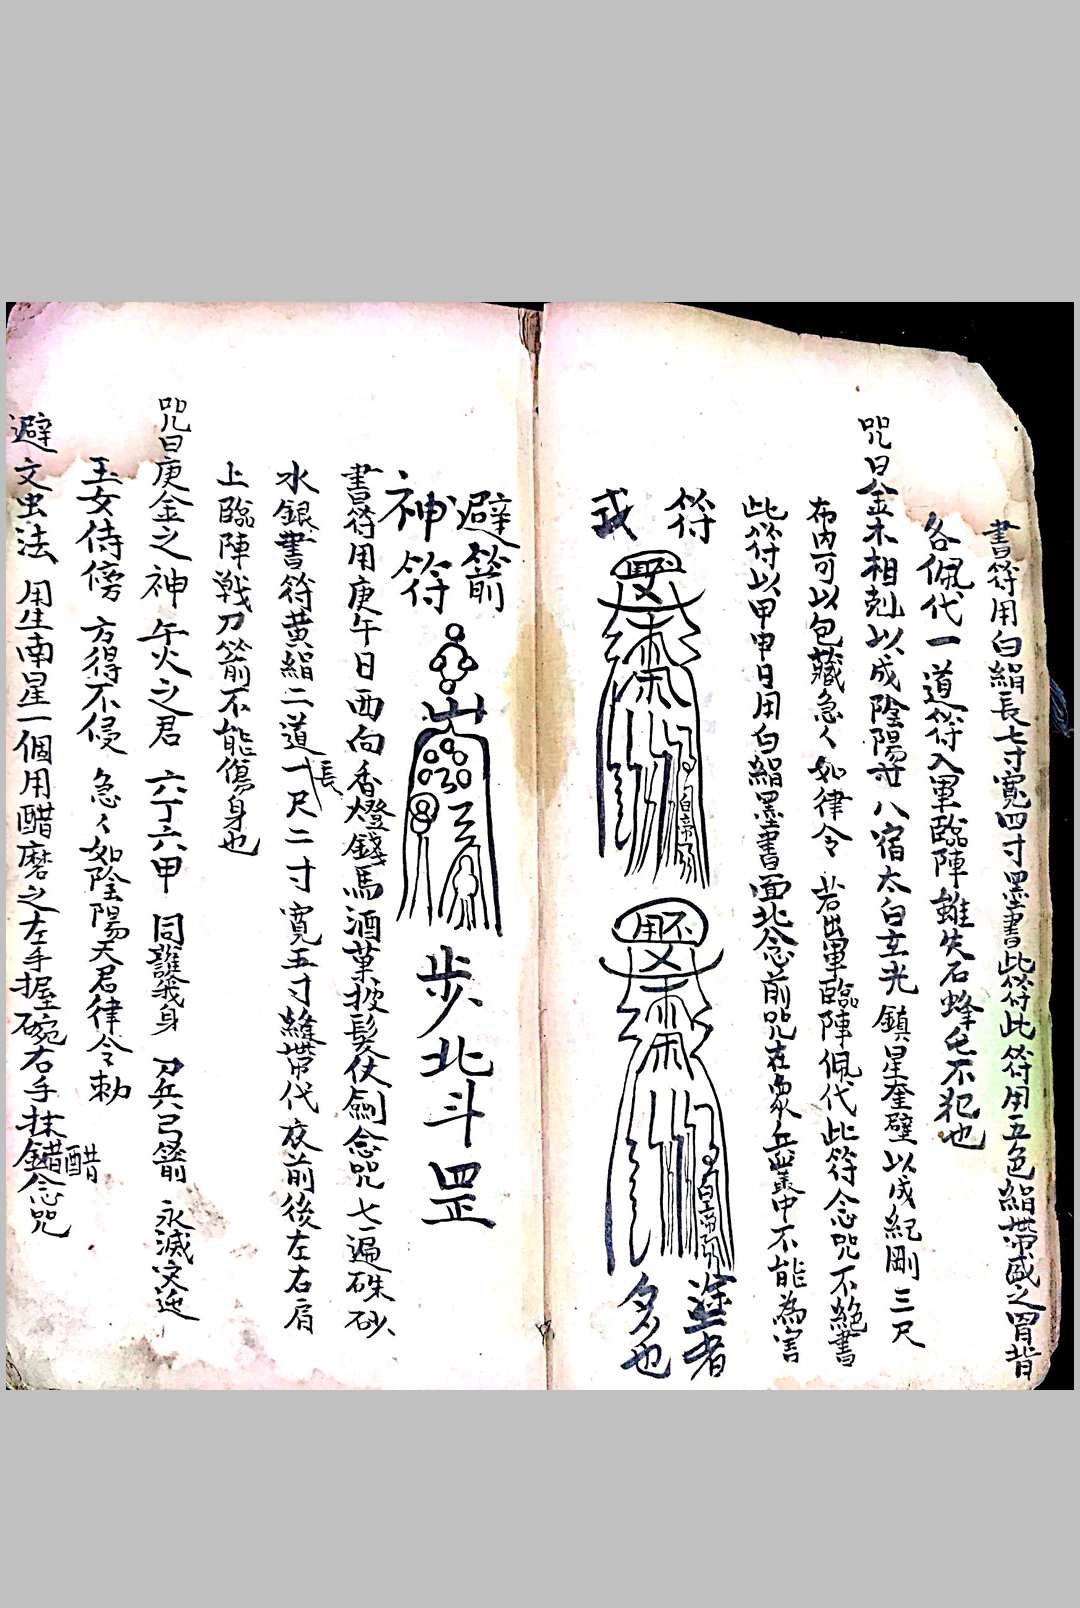 書符用白絹長七寸寬四寸墨書此符此符用五色絹帶盛之胃背
各佩代一道符入軍臨陣雖失石蜂屯不犯也
咒曰金木相剋以成陰陽廿八宿太白玄光鎮星奎壁以成紀剛三尺
布內可以包藏急々如律令 若出軍臨陣佩代此符念咒不絕書
此符以甲申日用白絹墨書面北念前咒在衆兵叢中不能為害
符 塗者
或 多也
白帝
不用
白帝
避箭
神符
步北斗罡
書符用庚午日西向香燈錢馬酒菓披髮仗劍念咒七遍硃砂
水銀書符黄絹二道長一尺二寸寬五寸縫帶代衣前後左右肩
上臨陣戰刀箭不能傷身也
咒曰庚金之神 午火之君 六丁六甲 同護我身 刀兵弓箭 永滅灾迍
玉女侍傍 方得不侵 急々如陰陽天君律令勅
避文虫法 用生南星一個用醋磨之左手握碗右手抹錯醋念咒